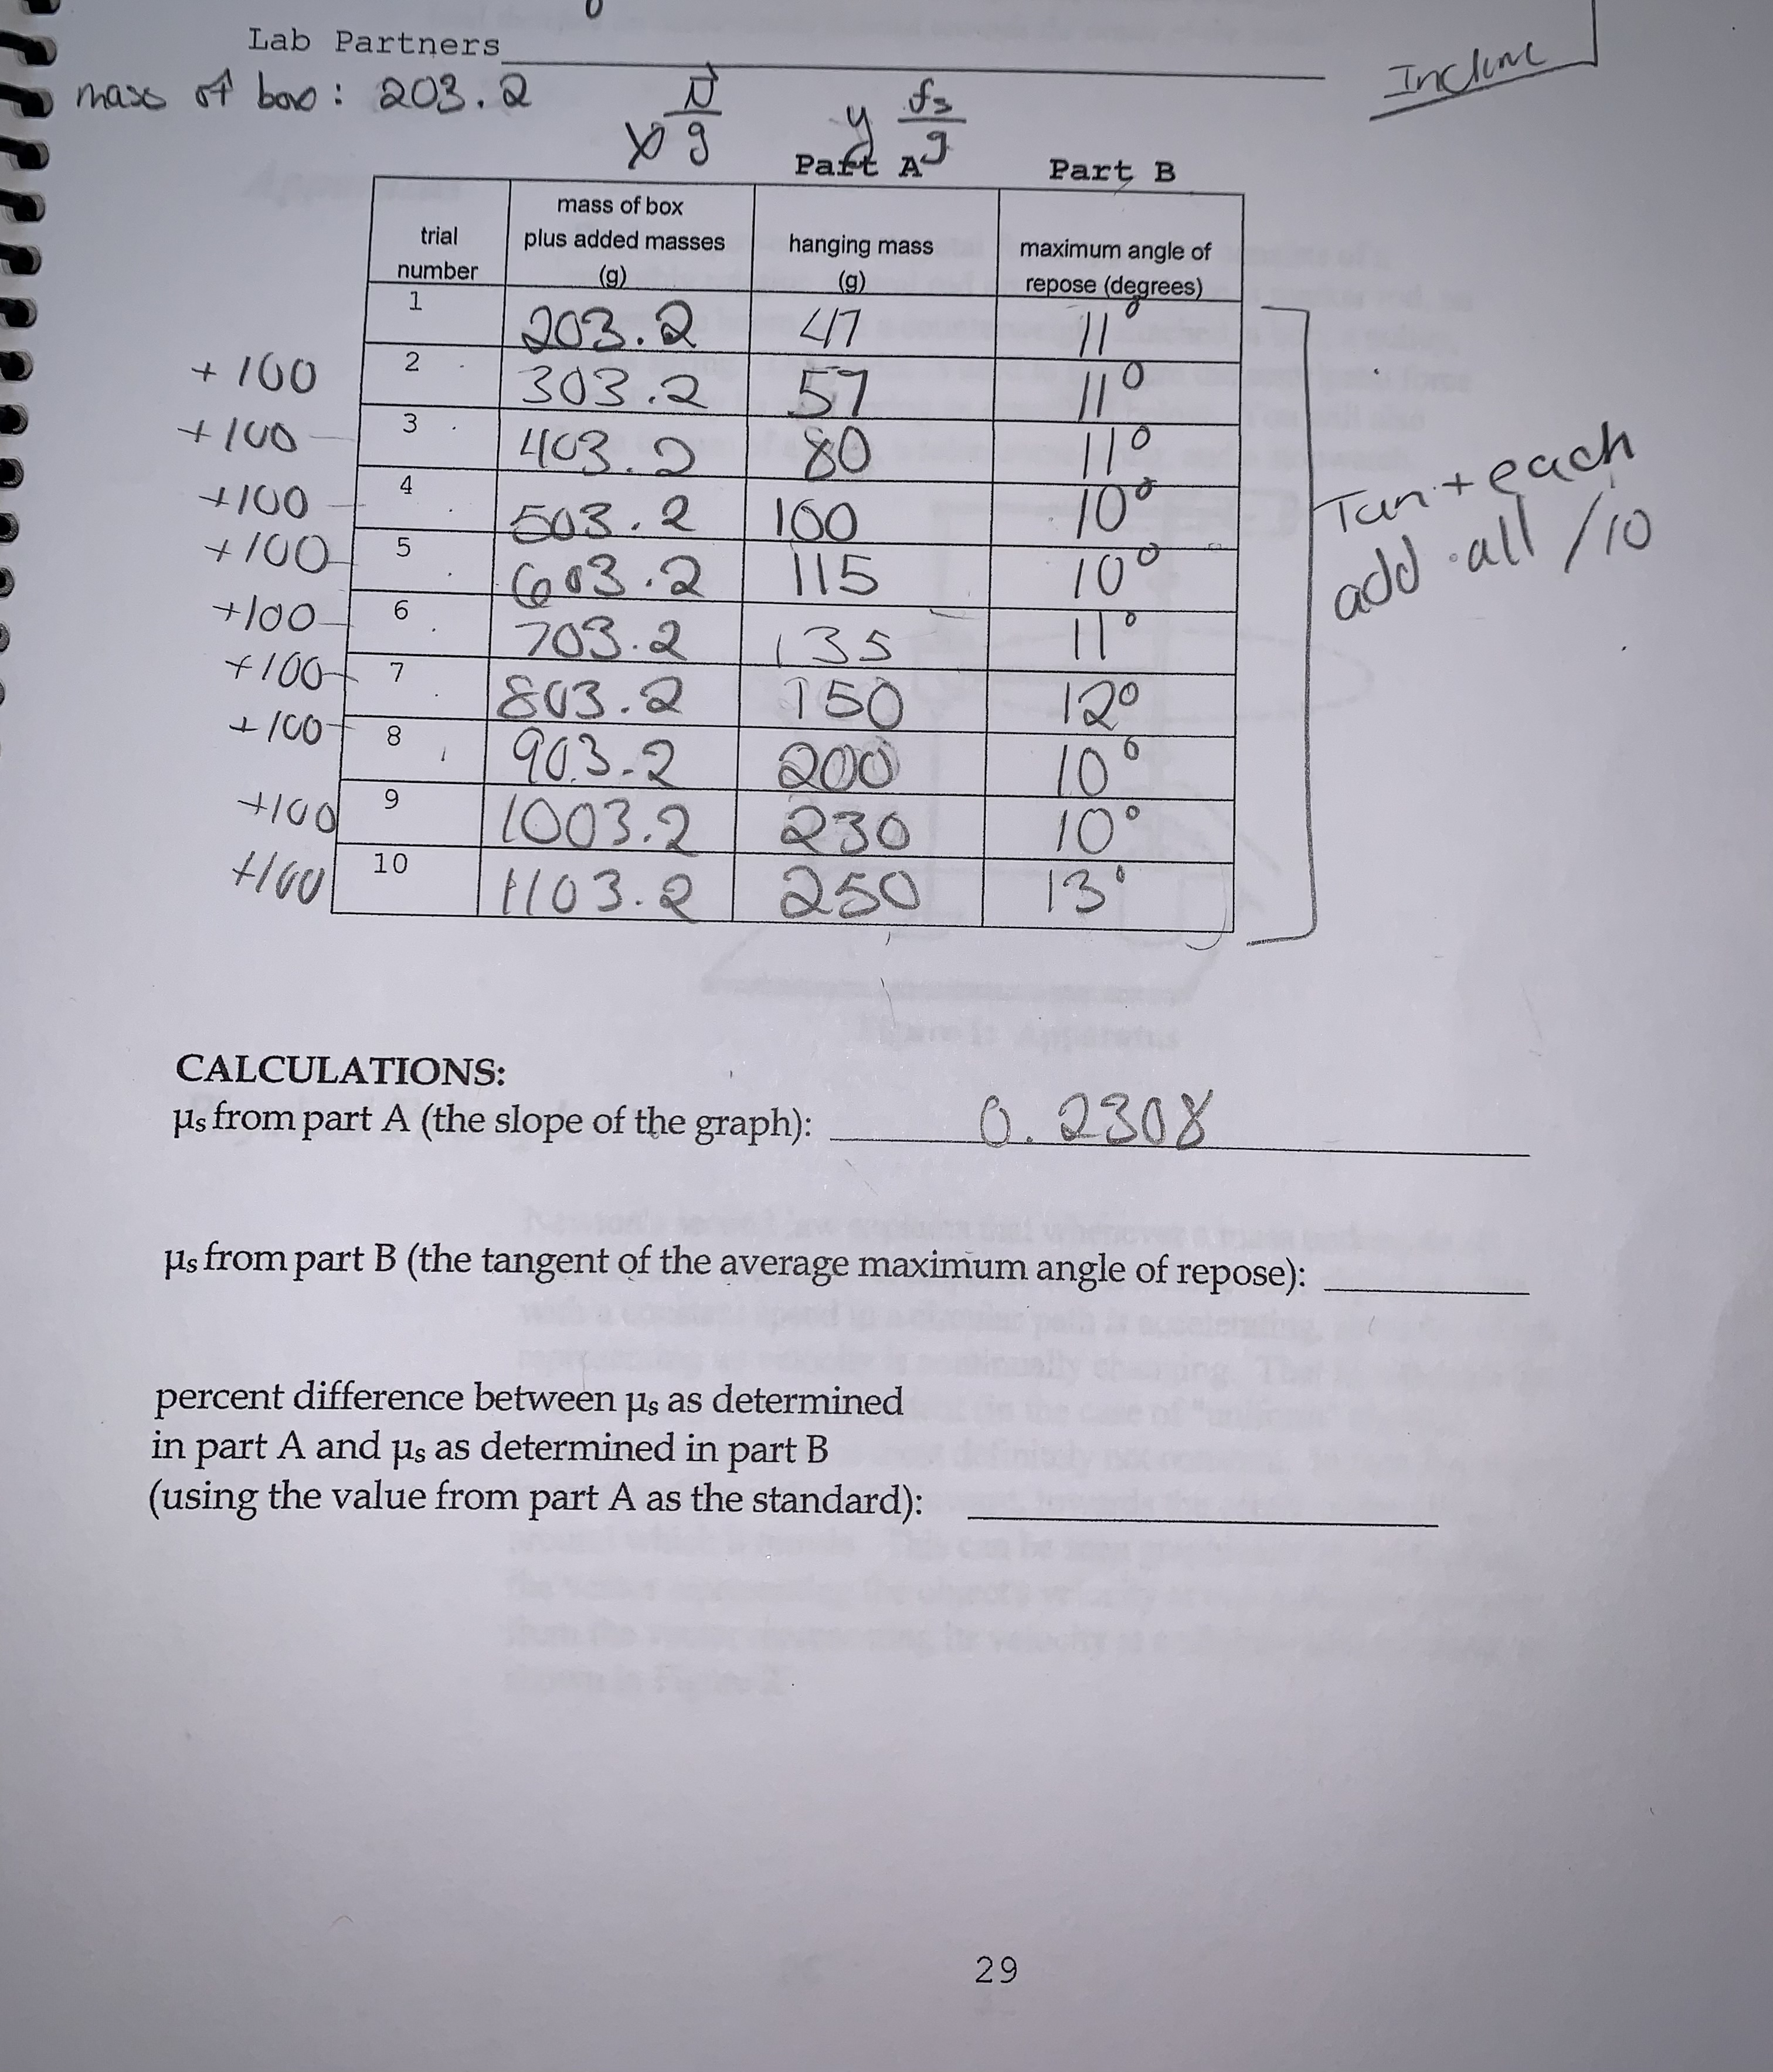 Lab Partners
Incline
mass of box: 203.2
x N/g
y fs/g
Part A Part B
trial number | mass of box plus added masses (g) | hanging mass (g) | maximum angle of repose (degrees)
1 203.2 47 11°
+100 2 303.2 57 11°
+100 3 403.2 80 11°
+100 4 503.2 100 10°
+100 5 603.2 115 10°
+100 6 703.2 135 11°
+100 7 803.2 150 12°
+100 8 903.2 200 10°
+100 9 1003.2 230 10°
+100 10 1103.2 250 13°
Tan + each
add all /10
CALCULATIONS:
μs from part A (the slope of the graph): 0.2308
μs from part B (the tangent of the average maximum angle of repose):
percent difference between μs as determined
in part A and μs as determined in part B
(using the value from part A as the standard):
29